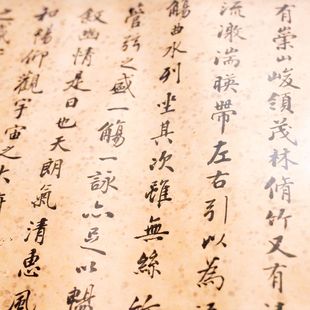 有崇山峻領茂林脩竹又有
流激湍暎帶左右引以為
觴曲水列坐其次雖無絲
管弦之盛一觴一詠亦足以暢
敘幽情是日也天朗氣清惠風
和暢仰觀宇宙之大